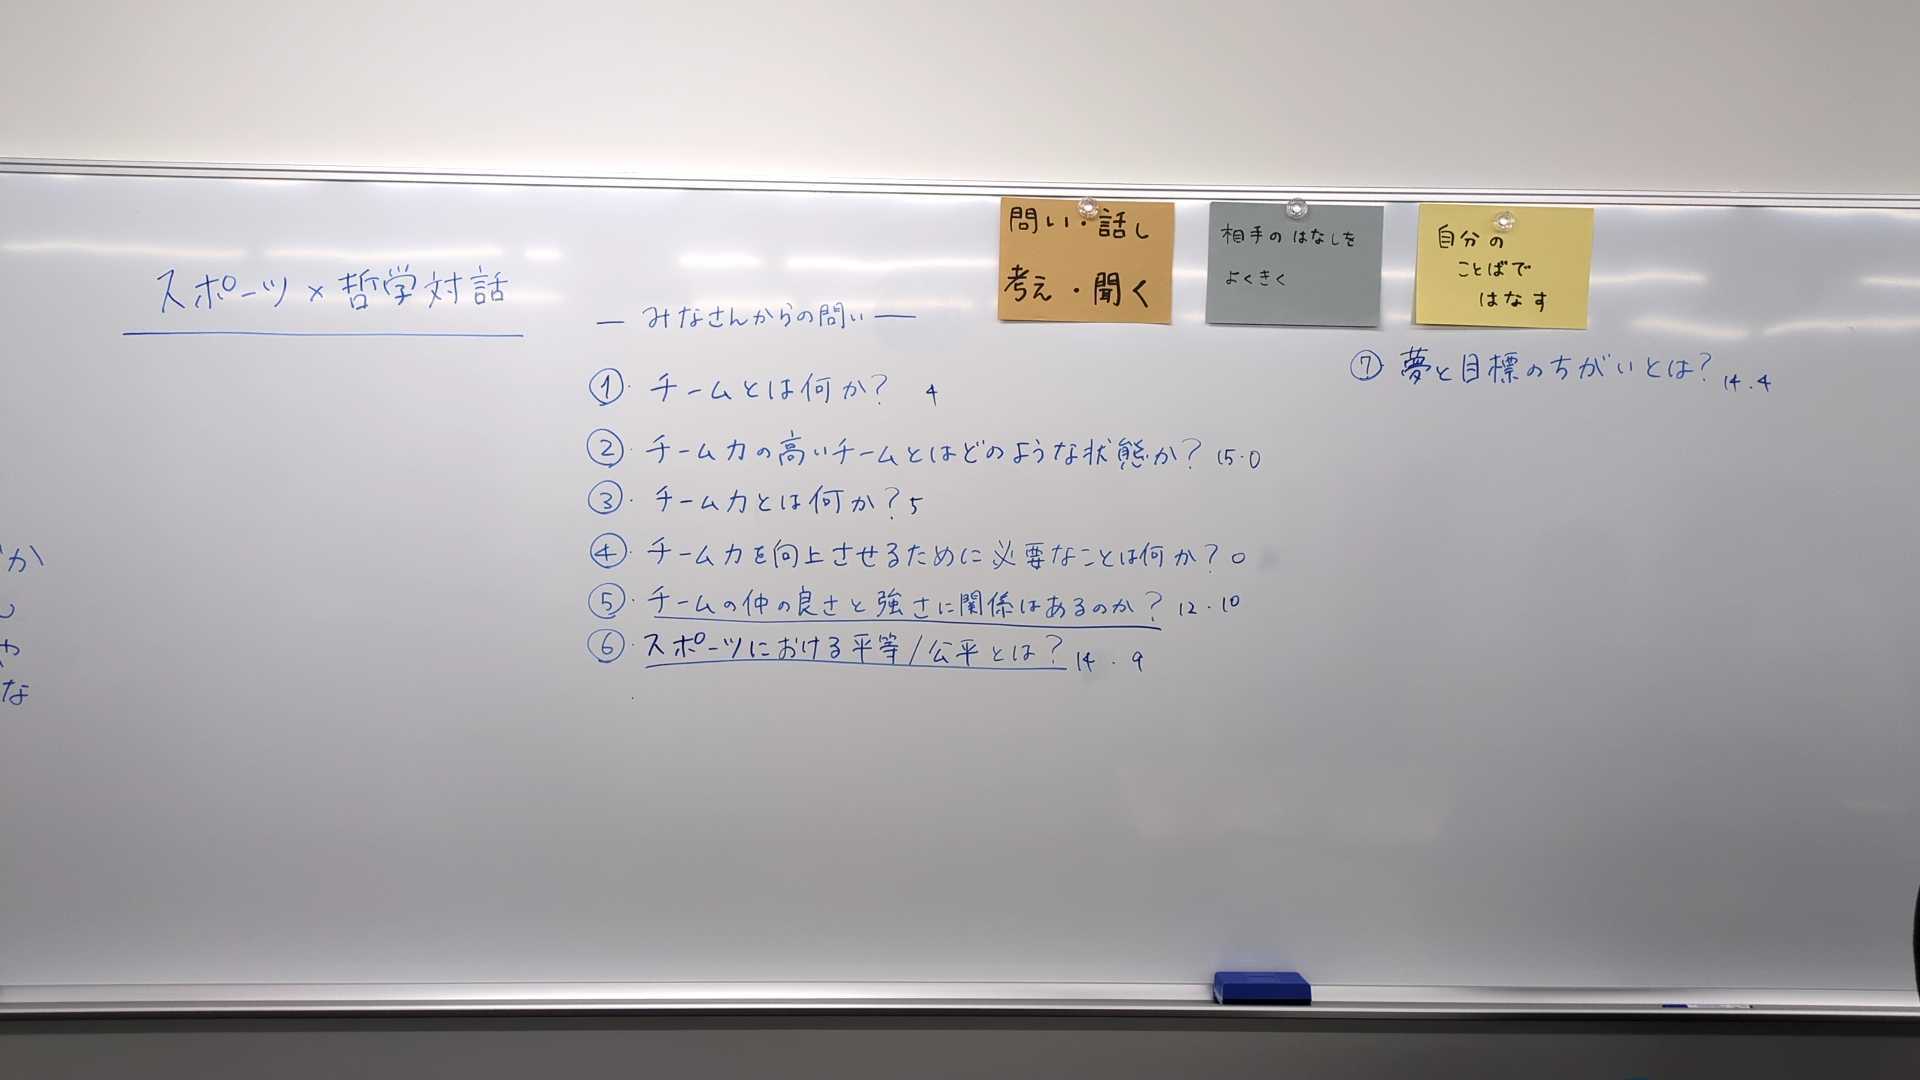 スポーツ×哲学対話
か
や
な
― みなさんからの問い ―
①・チームとは何か? 4
②・チーム力の高いチームとはどのような状態か? 15・0
③・チーム力とは何か? 5
④・チーム力を向上させるために必要なことは何か? 0
⑤・チームの仲の良さと強さに関係はあるのか? 12・10
⑥・スポーツにおける平等/公平とは? 14・9
問い・話し
考え・聞く
相手のはなしを
よくきく
自分の
ことばで
はなす
⑦ 夢と目標のちがいとは? 14.4